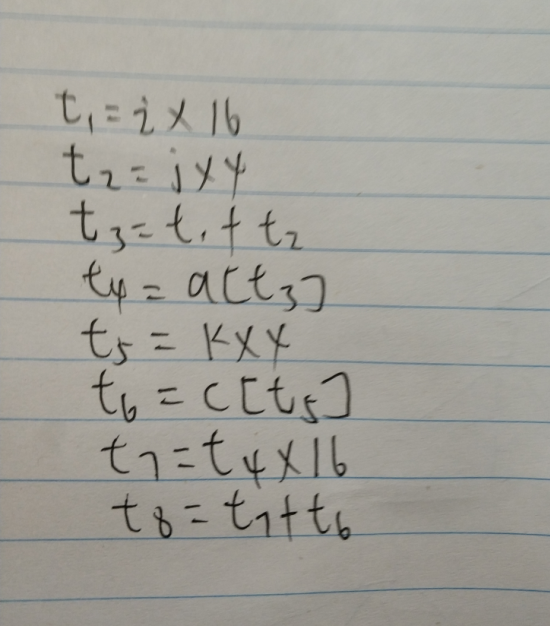 t₁ = i × 16
t₂ = j × 4
t₃ = t₁ + t₂
t₄ = a[t₃]
t₅ = k × 4
t₆ = c[t₅]
t₇ = t₄ × 16
t₈ = t₇ + t₆